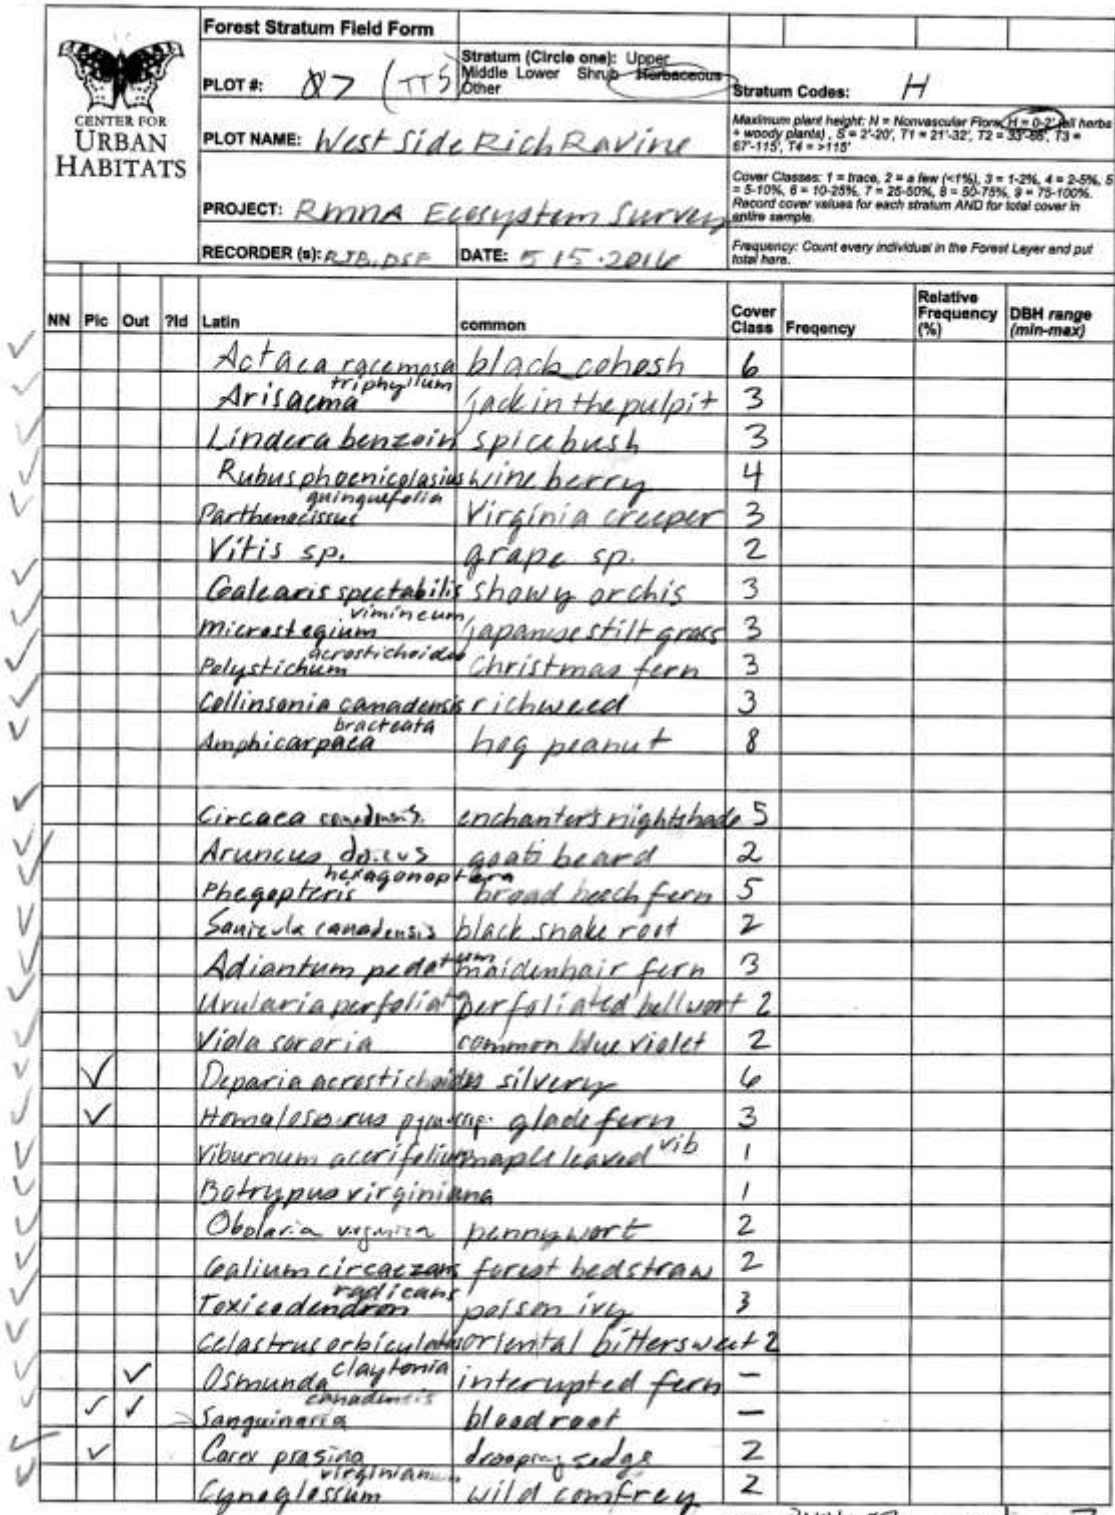 Forest Stratum Field Form
CENTER FOR
URBAN
HABITATS
PLOT #: 07 (TT5)
Stratum (Circle one): Upper
Middle Lower Shrub Herbaceous
Other
Stratum Codes: H
PLOT NAME: West Side Rich Ravine
Maximum plant height: N = Nonvascular Flora, H = 0-2' (all herbs
+ woody plants), S = 2'-20', T1 = 21'-32', T2 = 33'-66', T3 =
67'-115', T4 = >115'
PROJECT: RMNA Ecosystem Survey
Cover Classes: 1 = trace, 2 = a few (<1%), 3 = 1-2%, 4 = 2-5%, 5
= 5-10%, 6 = 10-25%, 7 = 25-50%, 8 = 50-75%, 9 = 75-100%.
Record cover values for each stratum AND for total cover in
entire sample.
RECORDER (s): RJB, DSF DATE: 5 15 . 2016
Frequency: Count every individual in the Forest Layer and put
total here.
NN Pic Out ?Id Latin common Cover Class Freqency Relative Frequency (%) DBH range (min-max)
✓ Actaea racemosa black cohosh 6
✓ Arisaema triphyllum jack in the pulpit 3
✓ Lindera benzoin spicebush 3
✓ Rubus phoenicolasius wine berry 4
✓ Parthenocissus quinquefolia Virginia creeper 3
Vitis sp. grape sp. 2
✓ Galearis spectabilis showy orchis 3
✓ Microstegium vimineum japanese stilt grass 3
✓ Polystichum acrostichoides Christmas fern 3
✓ Collinsonia canadensis richweed 3
✓ Amphicarpaea bracteata hog peanut 8
✓ Circaea canadensis enchanter's nightshade 5
✓ Aruncus doicus goats beard 2
✓ Phegopteris hexagonoptera broad beech fern 5
✓ Sanicula canadensis black snake root 2
✓ Adiantum pedatum maidenhair fern 3
✓ Uvularia perfoliata perfoliated bellwort 2
✓ Viola sororia common blue violet 2
✓ ✓ Deparia acrostichoides silvery 6
✓ ✓ Homalosorus glade fern 3
✓ Viburnum acerifolium maple leaved vib 1
✓ Botrypus virginiana 1
✓ Obolaria virginica pennywort 2
✓ Galium circaezans forest bedstraw 2
✓ Toxicodendron radicans poison ivy 3
✓ Celastrus orbiculatus oriental bittersweet 2
✓ ✓ Osmunda claytonia interupted fern –
✓ ✓ ✓ Sanguinaria canadensis bloodroot –
✓ ✓ Carex prasina drooping sedge 2
✓ Cynoglossum virginianum wild comfrey 2